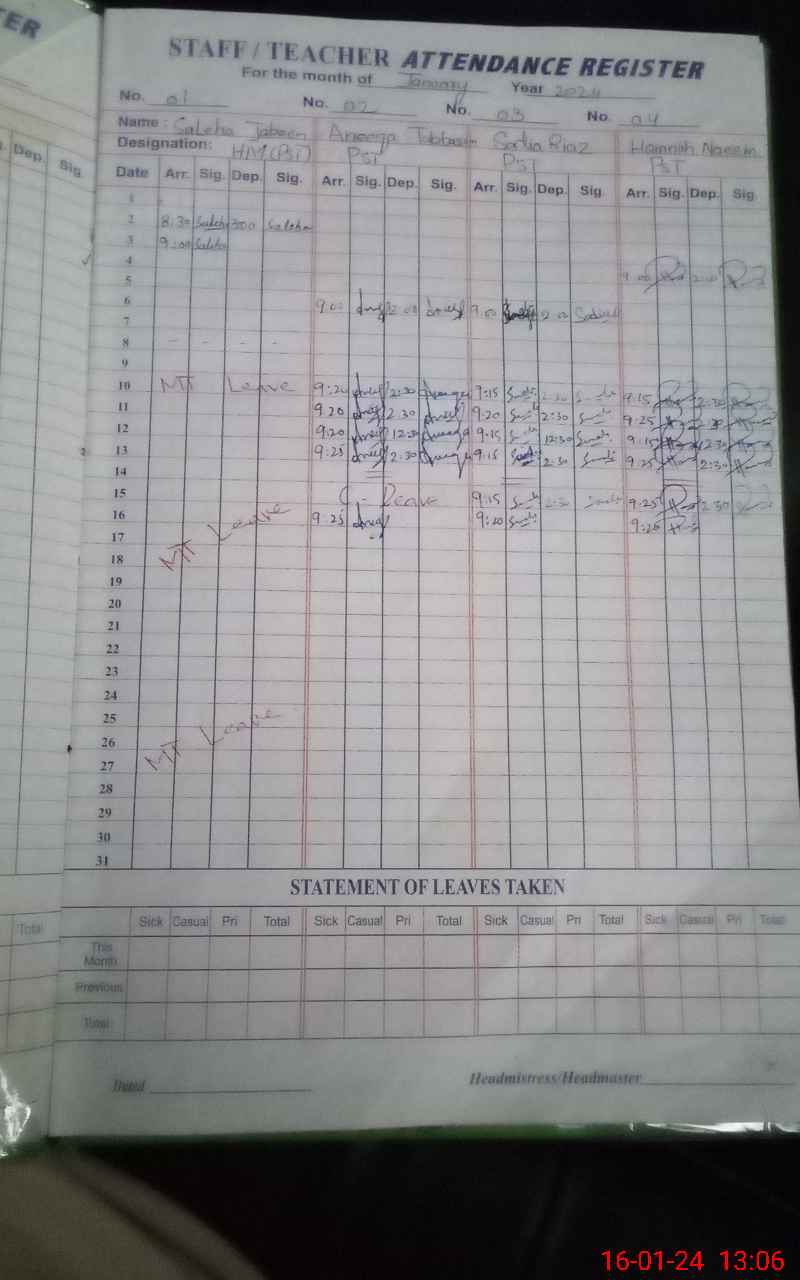 TER
STAFF / TEACHER ATTENDANCE REGISTER
For the month of January Year 2024
No. 01 No. 02 No. 03 No. 04
Name: Saleha Jabeen Aneeqa Tabbasum Sadia Riaz Hannah Naeem
Designation: HM(PST) PST PST PST
Dep. Sig.
Date Arr. Sig. Dep. Sig. Arr. Sig. Dep. Sig. Arr. Sig. Dep. Sig. Arr. Sig. Dep. Sig.
1
2 8:30 Saleha 3:00 Saleha
3 9:00 Saleha
4
5 9:00 2:00
6 9:00 2:00 9:00 2:00
7
8 - - - -
9
10 MT Leave 9:20 2:30 9:15 2:30 9:15 2:30
11 9:20 2:30 9:20 2:30 9:25 2:30
12 9:20 12:30 9:15 12:30 9:15 12:30
13 9:25 2:30 9:15 2:30 9:25 2:30
14
15 C-Leave 9:15 2:30 9:25 2:30
16 MT Leave 9:25 9:20 9:25
17
18
19
20
21
22
23
24
25
26 MT Leave
27
28
29
30
31
STATEMENT OF LEAVES TAKEN
Total
Sick Casual Pri Total Sick Casual Pri Total Sick Casual Pri Total Sick Casual Pri Total
This Month
Previous
Total
Dated Headmistress/Headmaster
16-01-24 13:06